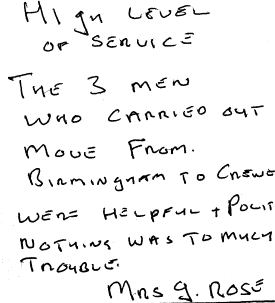 HIGH LEVEL
OF SERVICE
THE 3 MEN
WHO CARRIED OUT
MOVE FROM.
BIRMINGHAM TO CREWE
WERE HELPFUL + POLIT
NOTHING WAS TO MUCH
TROUBLE.
MRS G. ROSE